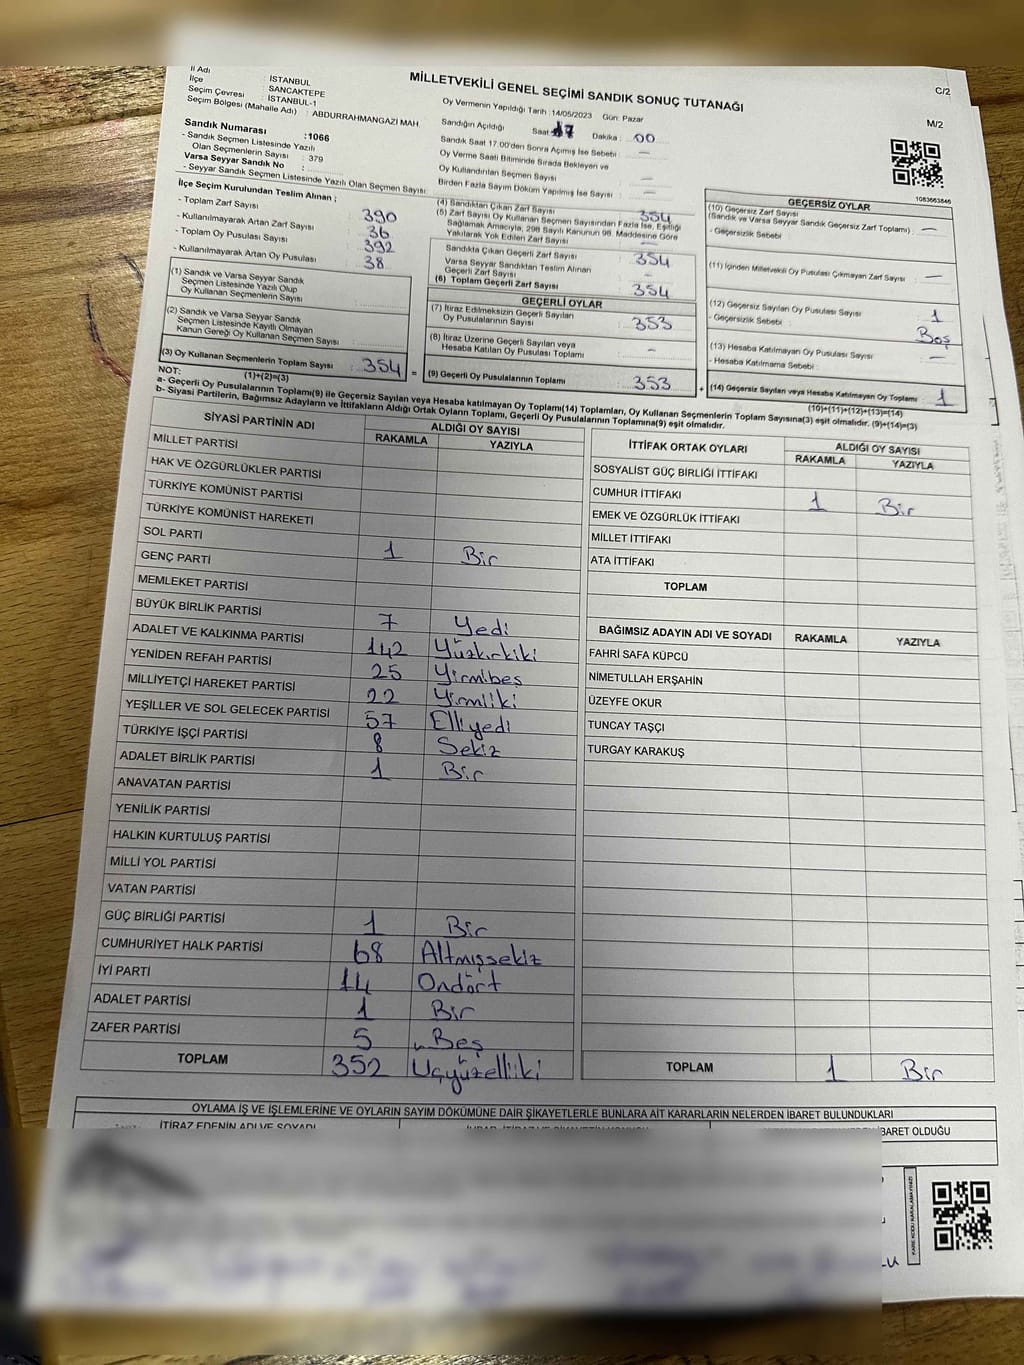 MİLLETVEKİLİ GENEL SEÇİMİ SANDIK SONUÇ TUTANAĞI
C/2
M/2
İl Adı
İlçe : İSTANBUL
Seçim Çevresi : SANCAKTEPE
Seçim Bölgesi (Mahalle Adı) : İSTANBUL-1
: ABDURRAHMANGAZİ MAH.
Sandık Numarası :1066
- Sandık Seçmen Listesinde Yazılı
Olan Seçmenlerin Sayısı : 379
Varsa Seyyar Sandık No :
- Seyyar Sandık Seçmen Listesinde Yazılı Olan Seçmen Sayısı :
Oy Vermenin Yapıldığı Tarih :14/05/2023 Gün: Pazar
Sandığın Açıldığı Saat : 17 Dakika : 00
Sandık Saat 17.00'den Sonra Açımış İse Sebebi : —
Oy Verme Saati Bitiminde Sırada Bekleyen ve
Oy Kullandırılan Seçmen Sayısı : —
Birden Fazla Sayım Döküm Yapılmış İse Sayısı : —
1083663846
İlçe Seçim Kurulundan Teslim Alınan ;
- Toplam Zarf Sayısı : 390
- Kullanılmayarak Artan Zarf Sayısı : 36
- Toplam Oy Pusulası Sayısı : 392
- Kullanılmayarak Artan Oy Pusulası : 38
(1) Sandık ve Varsa Seyyar Sandık
Seçmen Listesinde Yazılı Olup
Oy Kullanan Seçmenlerin Sayısı :
(2) Sandık ve Varsa Seyyar Sandık
Seçmen Listesinde Kayıtlı Olmayan
Kanun Gereği Oy Kullanan Seçmen Sayısı :
(3) Oy Kullanan Seçmenlerin Toplam Sayısı : 354 =
(1)+(2)=(3)
(4) Sandıktan Çıkan Zarf Sayısı : 354
(5) Zarf Sayısı Oy Kullanan Seçmen Sayısından Fazla İse, Eşitliği
Sağlamak Amacıyla, 298 Sayılı Kanunun 98. Maddesine Göre
Yakılarak Yok Edilen Zarf Sayısı : —
Sandıkta Çıkan Geçerli Zarf Sayısı : 354
Varsa Seyyar Sandıktan Teslim Alınan
Geçerli Zarf Sayısı : —
(6) Toplam Geçerli Zarf Sayısı : 354
GEÇERLİ OYLAR
(7) İtiraz Edilmeksizin Geçerli Sayılan
Oy Pusulalarının Sayısı : 353
(8) İtiraz Üzerine Geçerli Sayılan veya
Hesaba Katılan Oy Pusulası Toplamı : —
(9) Geçerli Oy Pusulalarının Toplamı : 353 +
GEÇERSİZ OYLAR
(10) Geçersiz Zarf Sayısı
(Sandık ve Varsa Seyyar Sandık Geçersiz Zarf Toplamı) : —
- Geçersizlik Sebebi :
(11) İçinden Milletvekili Oy Pusulası Çıkmayan Zarf Sayısı : —
(12) Geçersiz Sayılan Oy Pusulası Sayısı : 1
- Geçersizlik Sebebi : Boş
(13) Hesaba Katılmayan Oy Pusulası Sayısı : —
- Hesaba Katılmama Sebebi :
(14) Geçersiz Sayılan veya Hesaba Katılmayan Oy Toplamı : 1
(10)+(11)+(12)+(13)=(14)
NOT:
a- Geçerli Oy Pusulalarının Toplamı(9) ile Geçersiz Sayılan veya Hesaba katılmayan Oy Toplamı(14) Toplamları, Oy Kullanan Seçmenlerin Toplam Sayısına(3) eşit olmalıdır. (9)+(14)=(3)
b- Siyasi Partilerin, Bağımsız Adayların ve İttifakların Aldığı Ortak Oyların Toplamı, Geçerli Oy Pusulalarının Toplamına(9) eşit olmalıdır.
SİYASİ PARTİNİN ADI ALDIĞI OY SAYISI
RAKAMLA YAZIYLA
MİLLET PARTİSİ
HAK VE ÖZGÜRLÜKLER PARTİSİ
TÜRKİYE KOMÜNİST PARTİSİ
TÜRKİYE KOMÜNİST HAREKETİ
SOL PARTİ
GENÇ PARTİ 1 Bir
MEMLEKET PARTİSİ
BÜYÜK BİRLİK PARTİSİ
ADALET VE KALKINMA PARTİSİ 7 Yedi
YENİDEN REFAH PARTİSİ 142 Yüzkırkiki
MİLLİYETÇİ HAREKET PARTİSİ 25 Yirmibeş
YEŞİLLER VE SOL GELECEK PARTİSİ 22 Yirmiiki
TÜRKİYE İŞÇİ PARTİSİ 57 Elliyedi
8 Sekiz
ADALET BİRLİK PARTİSİ 1 Bir
ANAVATAN PARTİSİ
YENİLİK PARTİSİ
HALKIN KURTULUŞ PARTİSİ
MİLLİ YOL PARTİSİ
VATAN PARTİSİ
GÜÇ BİRLİĞİ PARTİSİ 1 Bir
CUMHURİYET HALK PARTİSİ 68 Altmışsekiz
İYİ PARTİ 14 Ondört
ADALET PARTİSİ 1 Bir
ZAFER PARTİSİ 5 Beş
TOPLAM 352 Üçyüzelliiki
İTTİFAK ORTAK OYLARI ALDIĞI OY SAYISI
RAKAMLA YAZIYLA
SOSYALİST GÜÇ BİRLİĞİ İTTİFAKI
CUMHUR İTTİFAKI 1 Bir
EMEK VE ÖZGÜRLÜK İTTİFAKI
MİLLET İTTİFAKI
ATA İTTİFAKI
TOPLAM
BAĞIMSIZ ADAYIN ADI VE SOYADI RAKAMLA YAZIYLA
FAHRİ SAFA KÜPCÜ
NİMETULLAH ERŞAHİN
ÜZEYFE OKUR
TUNCAY TAŞÇI
TURGAY KARAKUŞ
TOPLAM 1 Bir
OYLAMA İŞ VE İŞLEMLERİNE VE OYLARIN SAYIM DÖKÜMÜNE DAİR ŞİKAYETLERLE BUNLARA AİT KARARLARIN NELERDEN İBARET BULUNDUKLARI
İTİRAZ EDENİN ADI VE SOYADI
İBARET OLDUĞU
KARE KODU KARALAMAYINIZ!